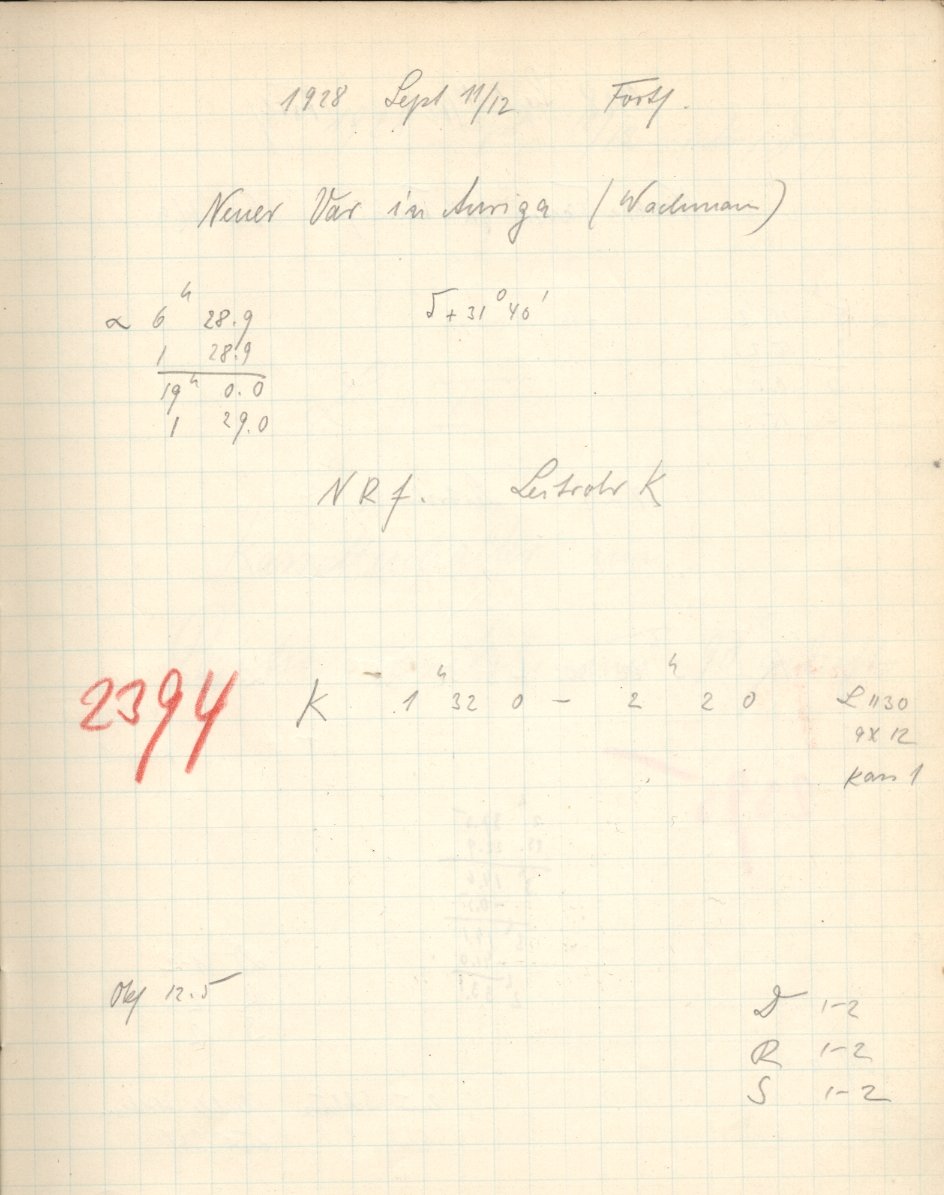 1928 Sept 11/12 Forts.
Neuer Var in Auriga (Wachmann)
α 6h 28.9 δ + 31° 40'
1 28.9
19h 0.0
1 29.0
N R f. Leitrohr K
2394 K 1h 32 0 – 2h 2 0 L 1130
9x12
Kass 1
Obj 12.5
D 1-2
R 1-2
S 1-2